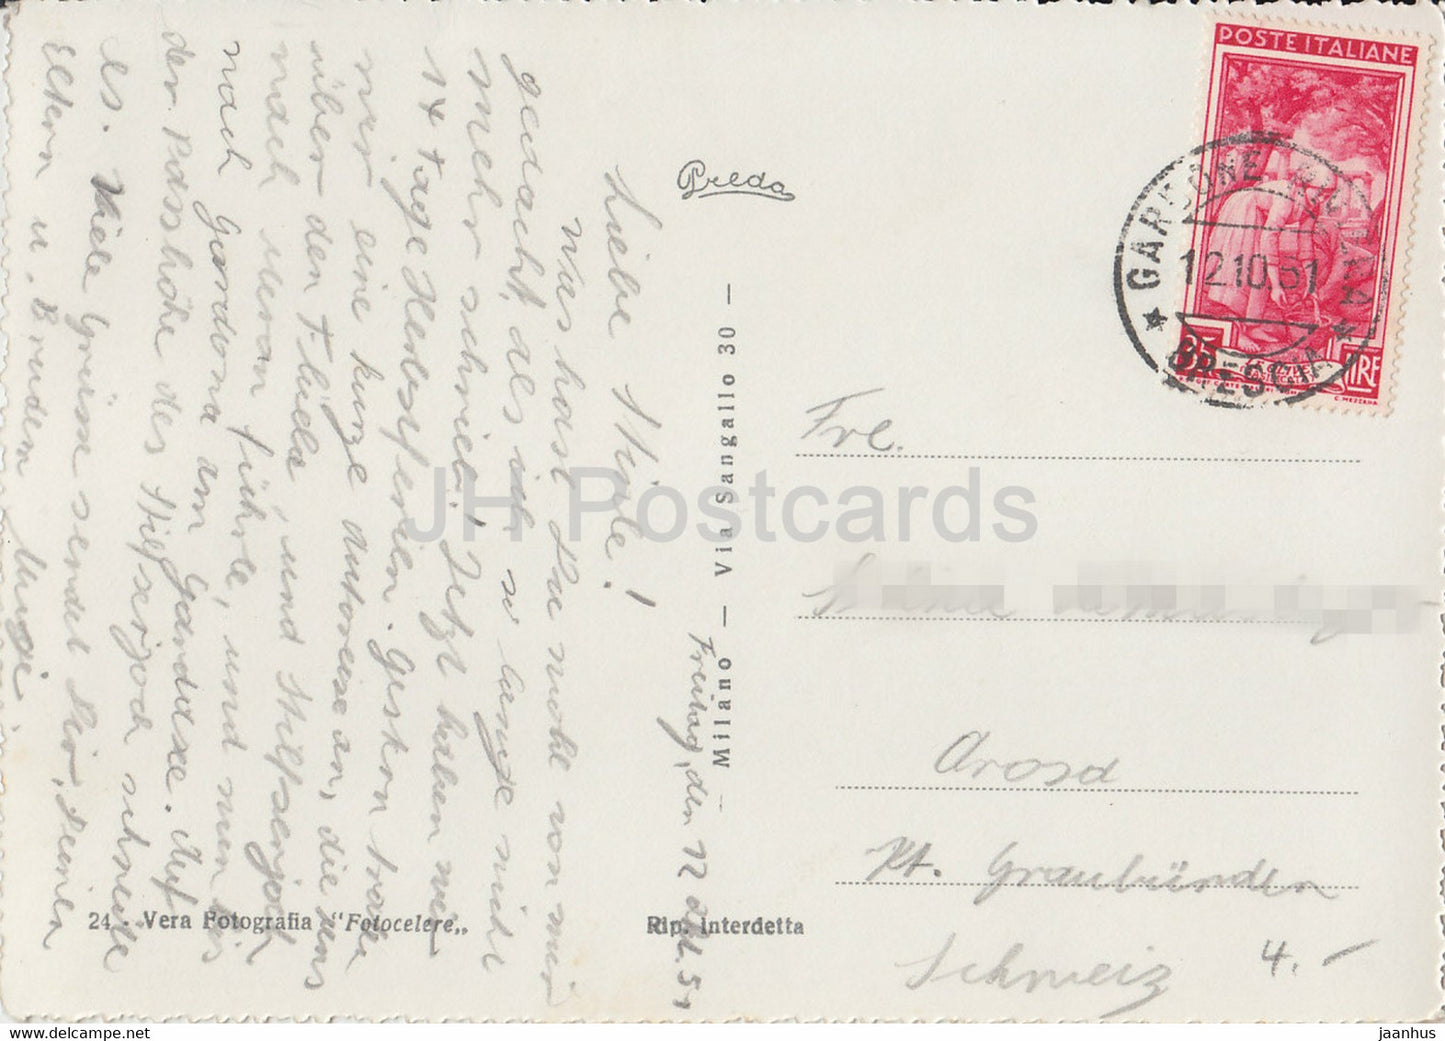 Freitag, den 12. Okt. 51
Liebe
Was hast Du wohl von mir
gedacht, als ich so lange nicht
mehr schrieb! Jetzt haben wir
14 Tage Herbstferien. Gestern traten
wir eine kurze Autoreise an, die uns
über den Flüela, und Stilfserjoch
nach Meran führte, und nun bis
nach Gardona am Gardasee. Auf
der Passhöhe des Stilfserjoch schneite
es. Viele Grüsse sendet Dir, Deinen
Eltern u. Brüdern
Breda
Milano — Via Sangallo 30 —
24 - Vera Fotografia "Fotocelere„
Rip. Interdetta
POSTE ITALIANE
LIRE
C. MEZZANA
GARDONE RIVIERA
12.10.51
BRESCIA
Frl.
Arosa
Kt. Graubünden
Schweiz
4.-
JH Postcards
https://jh-store.com
jhanhus